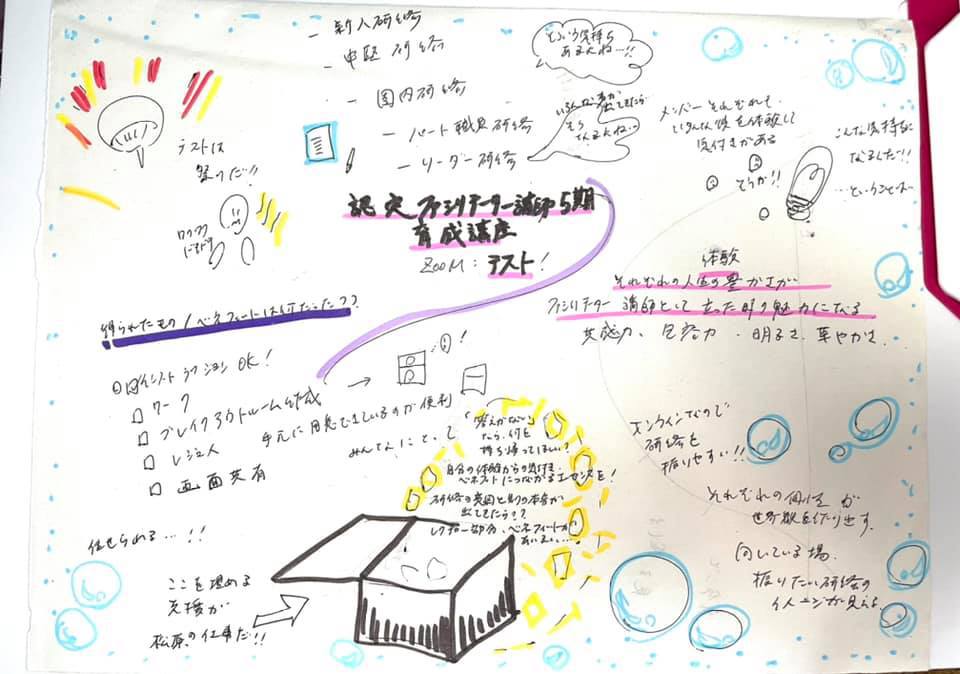 - 新人研修
- 中堅研修
- 国内研修
- パート職員研修
- リーダー研修
という気持ち
あるよね…!!
いろんな意が
出てきたら
そう
なるよね…
メンバーそれぞれで
いろんな役を体験して
気付きがある
そうか!!
こんな気持ちに
なるんだ!!
…ということは
テストは
宝の山だ!!
ワクワク
認定ファシリテーター講師5期
育成講座
ZOOM:テスト!
体験
それぞれの人生の豊かさが
ファシリテーター講師として立った時の魅力になる
共感力、包容力、明るさ、華やかさ、
得られたもの/ベネフィットは何だった??
インストラクションOK!
□ ワーク
□ ブレイクアウトルーム作成
□ レジュメ
□ 画面共有
手元に用意できているのが便利
みんなにとって
「答えがない」
なら、何を
持ち帰ってほしい?
自分の体験からの気付き、
ベネフィットにつながるエッセンスを!
研修の意図と別の本音が
出てきたら??
レクチャー部分、ベネフィットが
オンラインなので
研修を
振りやすい!!
それぞれの個性が
世界観を作り出す。
向いている場
振りたい研修の
イメージが見える
任せられる…!!
ここを埋める
支援が
松原の仕事だ!!